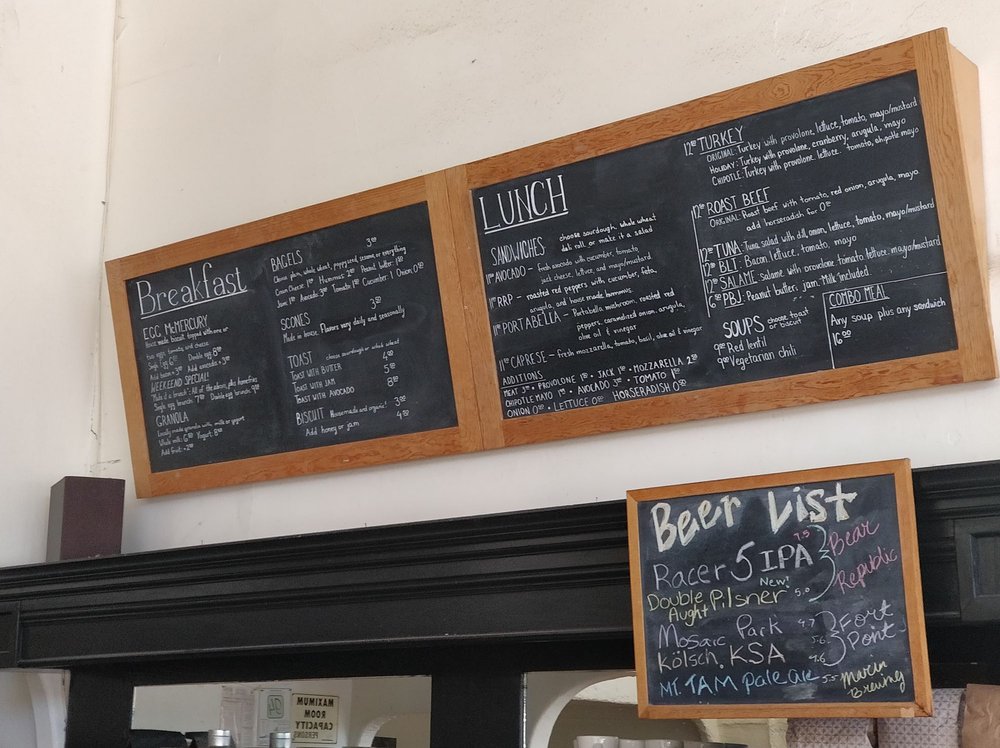 Breakfast
EGG McMERCURY
House made biscuit topped with one or
two eggs, tomato, and cheese.
Single Egg 6⁵⁰ Double egg 8⁵⁰
Add bacon +3⁰⁰ Add avocado +3⁰⁰
WEEKEND SPECIAL!
"Make it a brunch": All of the above, plus homefries
Single egg brunch: 7⁵⁰ Double egg brunch: 9⁵⁰
GRANOLA
Locally made granola with milk or yogurt
Whole milk: 6⁵⁰ Yogurt: 8⁰⁰
Add fruit: +2⁰⁰
BAGELS 3⁰⁰
Choose plain, whole wheat, poppyseed, sesame, or everything
Cream Cheese: 1⁵⁰ Hummus: 2⁰⁰ Peanut butter: 1⁵⁰
Avocado: 3⁰⁰ Tomato: 1⁰⁰ Cucumber: 1 Onion: 0⁵⁰
SCONES 3⁵⁰
Made in house. Flavors vary daily and seasonally
TOAST choose sourdough or whole wheat
TOAST WITH BUTTER 4⁰⁰
TOAST WITH JAM 5⁰⁰
TOAST WITH AVOCADO 8⁰⁰
BISCUIT Housemade and organic! 3⁵⁰
Add honey or jam 4⁵⁰
LUNCH
SANDWICHES choose sourdough, whole wheat
dutch roll or make it a salad
11⁵⁰ AVOCADO - fresh avocado with cucumber, tomato,
jack cheese, lettuce, and mayo/mustard
11⁵⁰ RRP - roasted red peppers with cucumber, feta,
arugula, and house made hummus.
11⁵⁰ PORTABELLA - Portabella mushroom, roasted red
peppers, caramelized onion, arugula,
olive oil & vinegar
11⁵⁰ CAPRESE - fresh mozzarella, tomato, basil, olive oil & vinegar
ADDITIONS
MEAT 3⁰⁰ • PROVOLONE 1⁵⁰ • JACK 1⁵⁰ • MOZZARELLA 2⁵⁰
CHIPOTLE MAYO 1⁰⁰ • AVOCADO 3⁰⁰ • TOMATO 1⁰⁰
ONION 0⁵⁰ • LETTUCE 0⁵⁰ • HORSERADISH 0⁵⁰
12⁵⁰ TURKEY
ORIGINAL: Turkey with provolone, lettuce, tomato, mayo/mustard
HOLIDAY: Turkey with provolone, cranberry, arugula, mayo
CHIPOTLE: Turkey with provolone, lettuce, tomato, chipotle mayo
12⁵⁰ ROAST BEEF
ORIGINAL: Roast beef with tomato, red onion, arugula, mayo
add horseradish for 0⁵⁰
12⁵⁰ TUNA: Tuna salad with dill, onion, lettuce, tomato, mayo/mustard
12⁵⁰ BLT: Bacon, lettuce, tomato, mayo
12⁵⁰ SALAME: salame with provolone, tomato, lettuce, mayo/mustard
6⁵⁰ PBJ: Peanut butter, jam. Milk included.
SOUPS choose toast
or biscuit
9⁰⁰ Red lentil
9⁰⁰ Vegetarian chili
COMBO MEAL
Any soup plus any sandwich
16⁰⁰
Beer List
Racer 5 IPA 7.5
Bear
Republic
Double Aught Pilsner New! 5.0
Mosaic Park 4.7
Fort
Point
Kölsch, KSA 4.6
MT. TAM Pale ale 5.5 Marin
Brewing
MAXIMUM
ROOM
CAPACITY
PERSONS